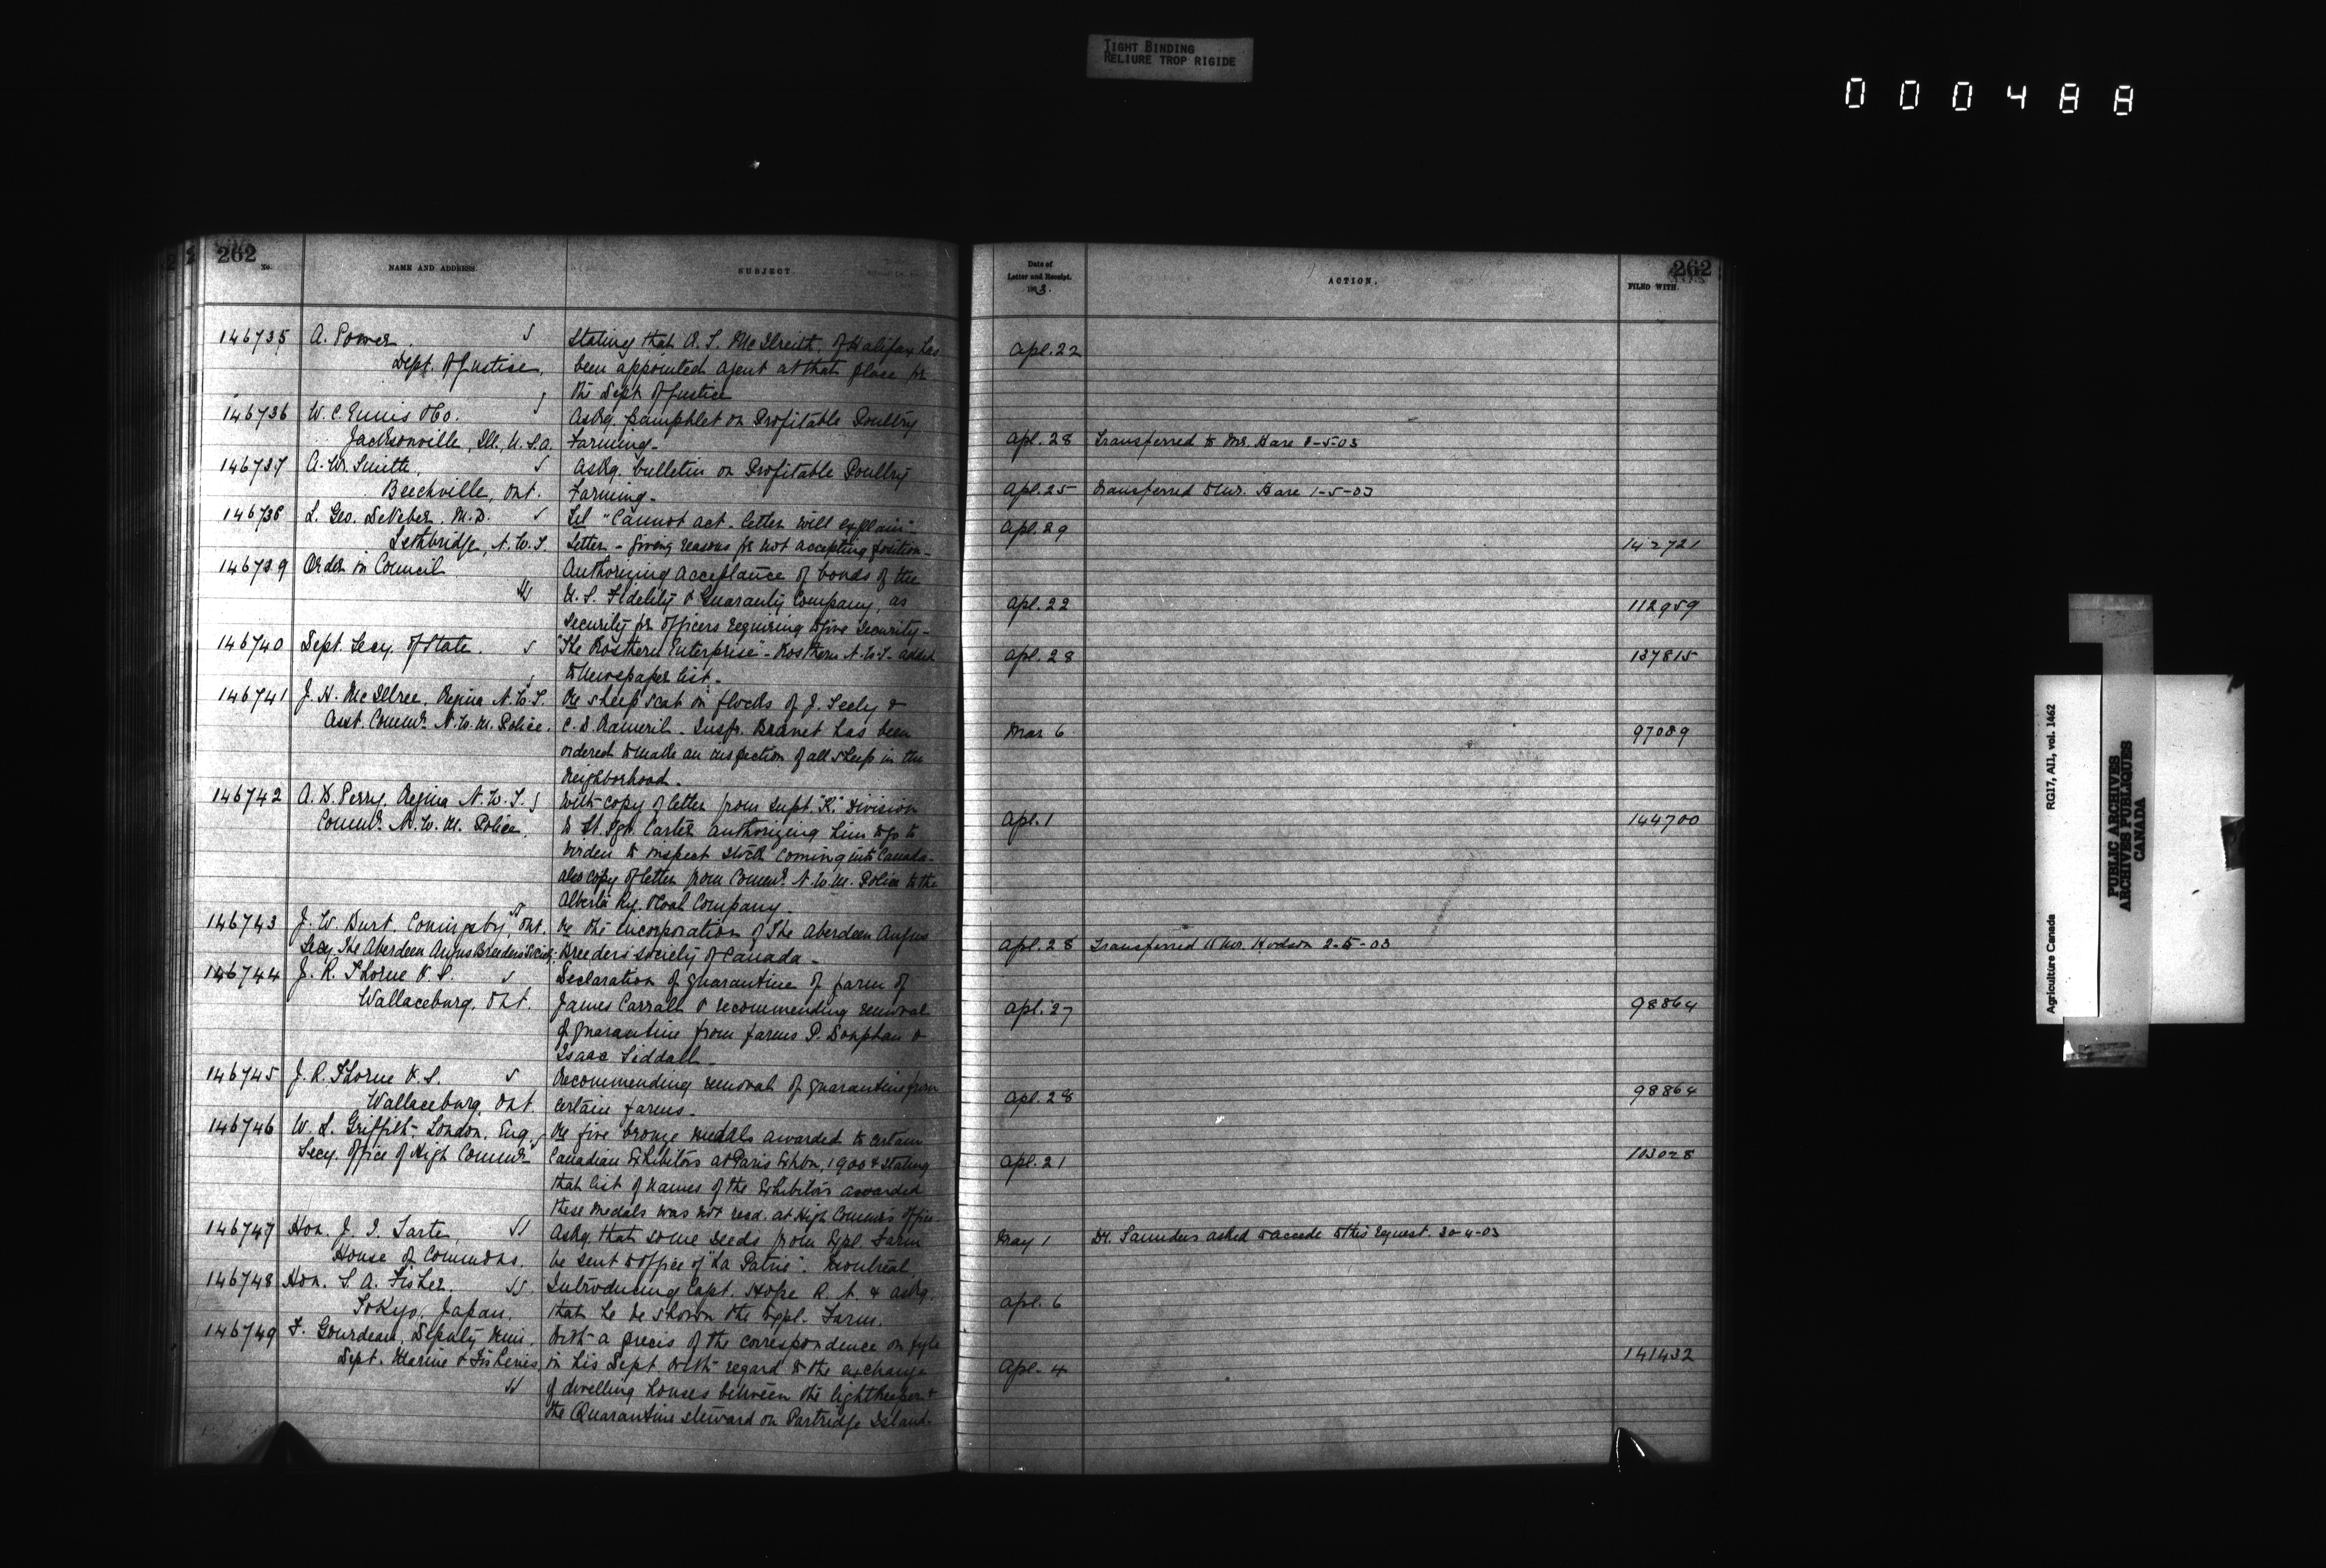 TIGHT BINDING
RELIURE TROP RIGIDE
000488
262
No.
NAME AND ADDRESS.
SUBJECT.
146735 A. Power. S Stating that R. T. McIlreith, of Halifax has
Dept. of Justice, been appointed agent at that place for
the Dept of Justice
146736 W. C. Ennis & Co. S Askg. pamphlet on Profitable Poultry
Jacksonville, Ill, U.S.A. Farming-
146737 A. W. Smith, S Askg. bulletin on Profitable Poultry
Beechville, Ont. Farming-
146738 L. Geo. DeVeber, M.D. S Tel "Cannot act - letter will explain"-
Lethbridge, N.W.T. Letter - giving reasons for not accepting position-
146739 Order in Council Authorizing acceptance of bonds of the
U.S. Fidelity & Guaranty Company, as
security for officers requiring to give security-
146740 Dept. Secy. of State. S "The Rosthern Enterprise"- Rosthern N.W.T- added
to Newspaper list.-
146741 J. H. McIllree, Regina N.W.T. Re sheep scab in flocks of J. Seely &
Asst. Commr. N.W.M. Police. C. D. . Inspr. has been
ordered to make an inspection of all sheep in the
neighborhood.
146742 A. B. Perry, Regina N.W.T. S With copy of letter from Supt. "K." Division
Commr. N.W.M. Police. to St. Sgt. Carter authorizing him to go to
to inspect stock coming into Canada-
also copy of letter from Commr. N.W.M. Police to the
Alberta Ry. & Coal Company.
146743 J. W. Burt, Coningsby, Ont. Re the incorporation of The Aberdeen Angus
Secy. The Aberdeen Angus Breeders Society. Breeders society of Canada-
146744 J. R. Thorne V.S. S Declaration of quarantine of farm of
Wallaceburg, Ont. James Carrall & recommending removal
of quarantine from farms P. &
Isaac Liddall-
146745 J. R. Thorne V.S. S Recommending removal of quarantine from
Wallaceburg, Ont. certain farms-
146746 W. L. Griffith, London, Eng. S Re five bronze medals awarded to certain
Secy. Office of High Commr. Canadian Exhibitors at Paris Exhbn, 1900 & stating
that list of names of the exhibitors awarded
these medals was not recd. at High Commr's office-
146747 Hon. J. I. Tarte, SS Askg. that some seeds from Expl. Farm
House of Commons. be sent to office of "La Patrie". Montreal.
146748 Hon. S. A. Fisher. SS Introducing Capt. Hope R.A. & askg.
Tokyo, Japan. that he be shown the Expl. Farm.
146749 F. Gourdeau, Deputy Min. With a precis of the correspondence on fyle
Dept. Marine & Fisheries in his Dept with regard to the exchange
of dwelling houses between the lightkeeper &
the Quarantine steward on Partridge Island-
Date of
Letter and Receipt.
1903.
ACTION.
262
FILED WITH.
Apl. 22
Apl. 28 Transferred to Mr. Hare 1-5-03
Apl. 25 Transferred to Mr. Hare 1-5-03
Apl. 29
142721
Apl. 22 112959
Apl. 28 137815
Mar 6 97089
Apl. 1 144700
Apl. 28 Transferred to Mr. Hodson 2-5-03
Apl. 27 98864
Apl. 28 98864
Apl. 21 103028
May 1 Dr. Saunders asked to accede to this request. 30-4-03
Apl. 6
Apl. 4 141432
Agriculture Canada RG17, AII, vol. 1462
PUBLIC ARCHIVES
ARCHIVES PUBLIQUES
CANADA